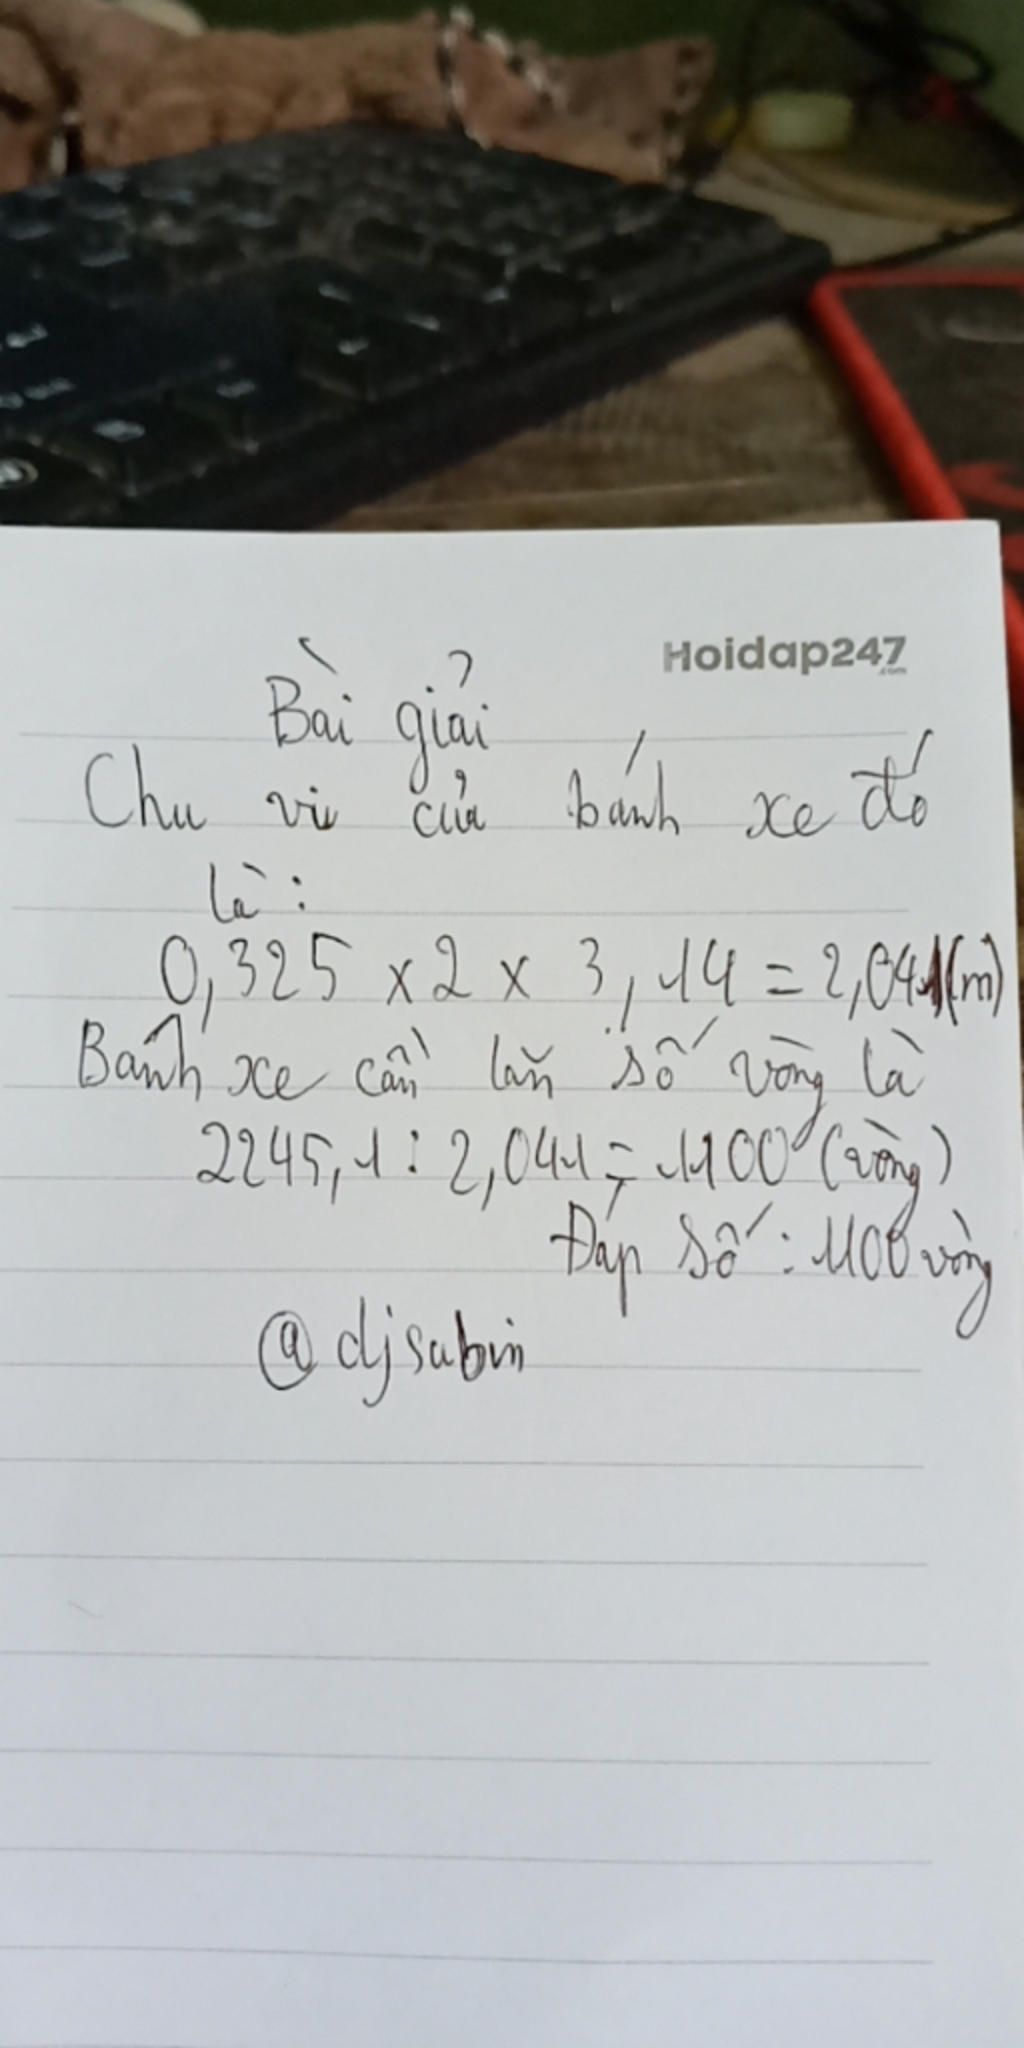 Hoidap247
.com
Bài giải
Chu vi của bánh xe đó
là:
0,325 x 2 x 3,14 = 2,041(m)
Bánh xe cần lăn số vòng là
2245,1 : 2,041 = 1100 (vòng)
Đáp số : 1100 vòng
@djsabin